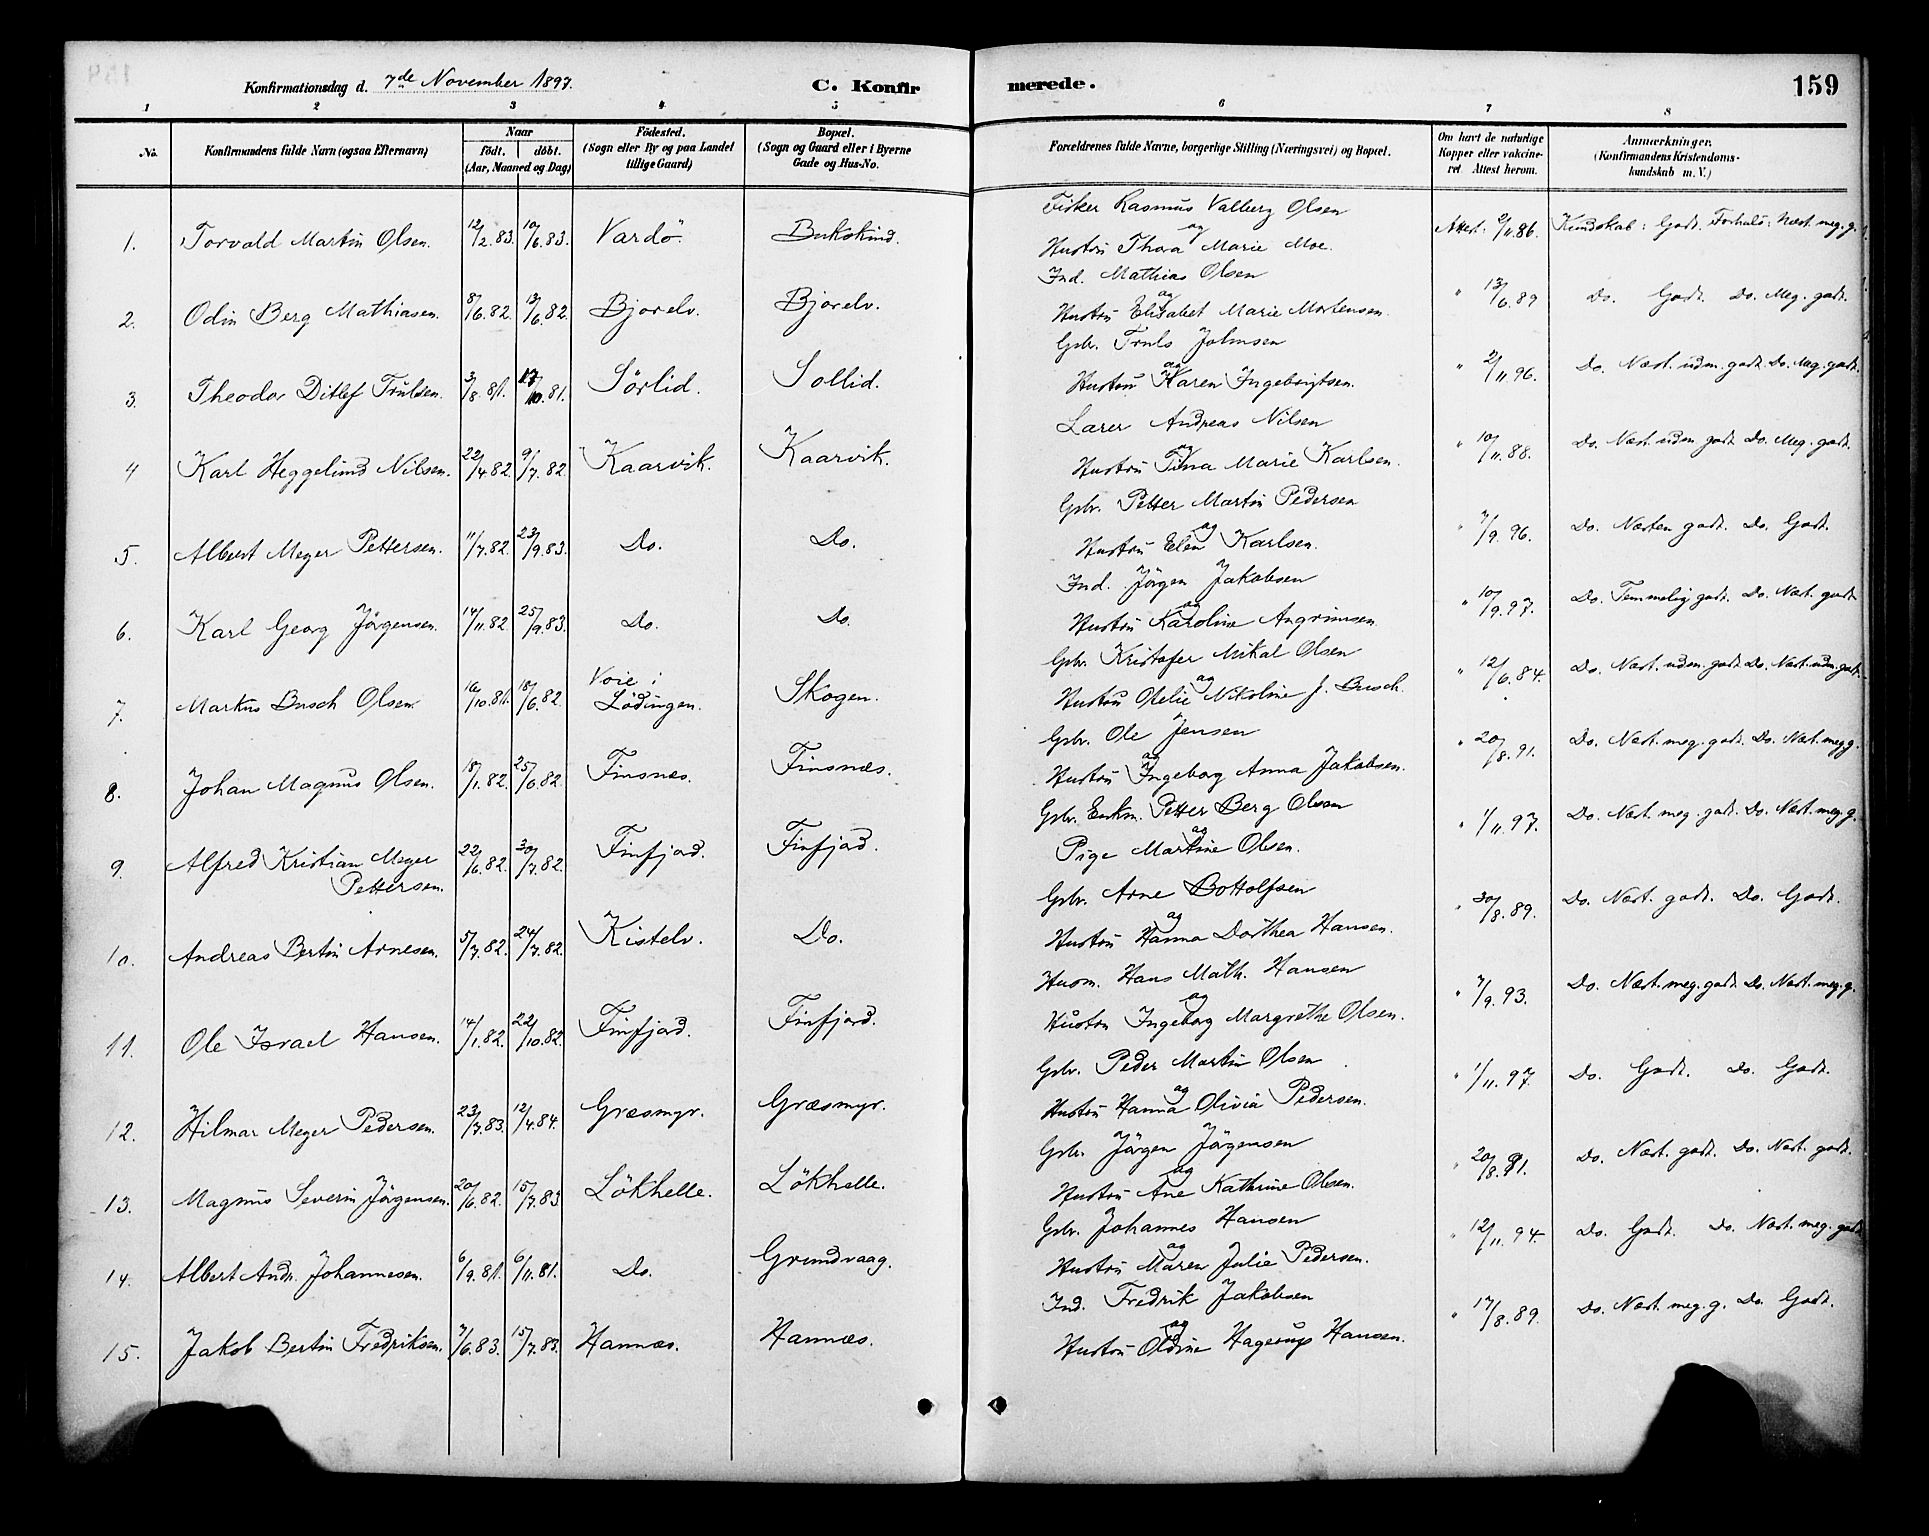 Konfirmationsdag d. 7de November 1897.
C. Konfirmerede.
159
1 2 3 4 5 6 7 8
No.
Konfirmandens fulde Navn (ogsaa Efternavn)
Naar
født. døbt.
(Aar, Maaned og Dag)
Födested.
(Sogn eller By og paa Landet tillige Gaard)
Bopæl.
(Sogn og Gaard eller i Byerne Gade og Hus-No.
Forældrenes fulde Navne, borgerlige Stilling (Næringsvei) og Bopæl.
Om havt de naturlige Kopper eller vakcineret Attest herom.
Anmærkninger.
(Konfirmandens Kristendomskundskab m. V.)
1. Torvald Martin Olsen. 12/2.83. 10/6.83. Vardö. Bukskind. Fisker Rasmus Valberg Olsen og Hustru Thora Marie Moe. Attest: 2/11.86. Kundskab: Godt. Forhold: Næst. meg. g.
2. Odin Berg Mathiasen. 8/6.82. 13/6.82. Bjorelv. Bjorelv. Ind. Mathias Olsen og Hustru Elisabet Marie Mortensen. " 13/6.89 Do. Godt. Do. Meg. godt.
3. Theodor Ditlef Trulsen. 3/8.81. 17/10.81. Sörlid. Sollid. Gbr. Truls Johnsen og Hustru Karen Ingebrigtsen. " 2/11.96. Do. Næst. udm. godt. Do. Meg. godt.
4 Karl Heggelund Nilsen. 22/4.82. 9/7.82. Kaarvik. Kaarvik. Lærer Andreas Nilsen og Hustru Tina Marie Karlsen. " 10/11.88. Do. Næst. udm. godt Do. Meg. godt.
5. Albert Meyer Pettersen. 11/7.82. 23/9.83. Do. Do. Gbr. Petter Martin Pedersen og Hustru Elen Karlsen. " 7/9.96. Do. Næsten godt. Do. Godt.
6. Karl Georg Jörgensen. 14/11.82. 25/9.83. Do. Do. Ind. Jörgen Jakobsen og Hustru Karoline Angrimsen. " 10/9.97. Do. Temmelig godt. Do. Næst. godt
7. Markus Busch Olsen. 16/10.81. 18/6.82. Voie i Lödingen. Skogen. Gbr. Kristofer Mikal Olsen og Hustru Otelie Nikoline J. Busch. " 12/6.84. Do. Næst. udm. godt Do. Næst. udm. godt.
8. Johan Magnus Olsen. 18/1.82. 25/6.82. Finsnæs. Finsnæs. Gbr. Ole Jensen og Hustru Ingeborg Anna Jakobsen. " 20/8.91. Do. Næst. meg. godt. Do. Næst. meg g.
9. Alfred Kristian Meyer Pettersen. 22/6.82. 30/7.82. Finfjord. Finfjord. Gbr. Enkm. Petter Berg Olsen og Pige Martine Olsen. " 1/11.97. Do. Næst. meg. godt. Do. Næst. meg. g.
10. Andreas Bertin Arnesen. 5/7.82. 24/7.82. Kistelv. Do. Gbr. Arne Bottolfsen og Hustru Hanna Dorthea Hansen. " 30/8.89. Do. Næst. godt. Do. Godt.
11. Ole Israel Hansen. 14/1.82. 22/10.82. Finfjord. Finfjord. Husm. Hans Math. Hansen og Hustru Ingeborg Margrethe Olsen. " 7/9.93. Do. Næst. meg. godt Do. Næst. meg. g.
12. Hilmar Meyer Pedersen. 23/7.83. 12/4.84. Græsmyr. Græsmyr. Gbr. Peder Martin Olsen og Hustru Hanna Olivia Pedersen. " 1/11.97. Do. Godt. Do. Godt.
13. Magnus Severin Jörgensen. 20/6.82. 15/7.83 Lökhelle. Lökhelle. Gbr. Jörgen Jörgensen og Hustru Ane Kathrine Olsen. " 20/8.91. Do. Næst. godt. Do. Næst. godt.
14. Albert Andr. Johannesen. 6/9.81. 6/11.81. Do. Grundvaag. Gbr. Johannes Hansen og Hustru Maren Julie Pedersen. " 12/11.94. Do. Godt. Do. Næst. meg. godt
15. Jakob Bertin Fredriksen. 7/6.83. 15/7.83. Hannæs. Hannæs. Ind. Fredrik Jakobsen og Hustru Oldine Hagerup Hansen. " 17/8.89. Do. Næst. meg. g. Do. Godt.